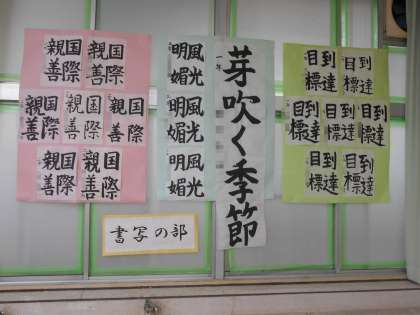 到達
目標
到達
目標
到達
目標
到達
目標
到達
目標
到達
目標
到達
目標
芽吹く季節
風光
明媚
風光
明媚
風光
明媚
国際
親善
国際
親善
国際
親善
国際
親善
国際
親善
国際
親善
国際
親善
書写の部